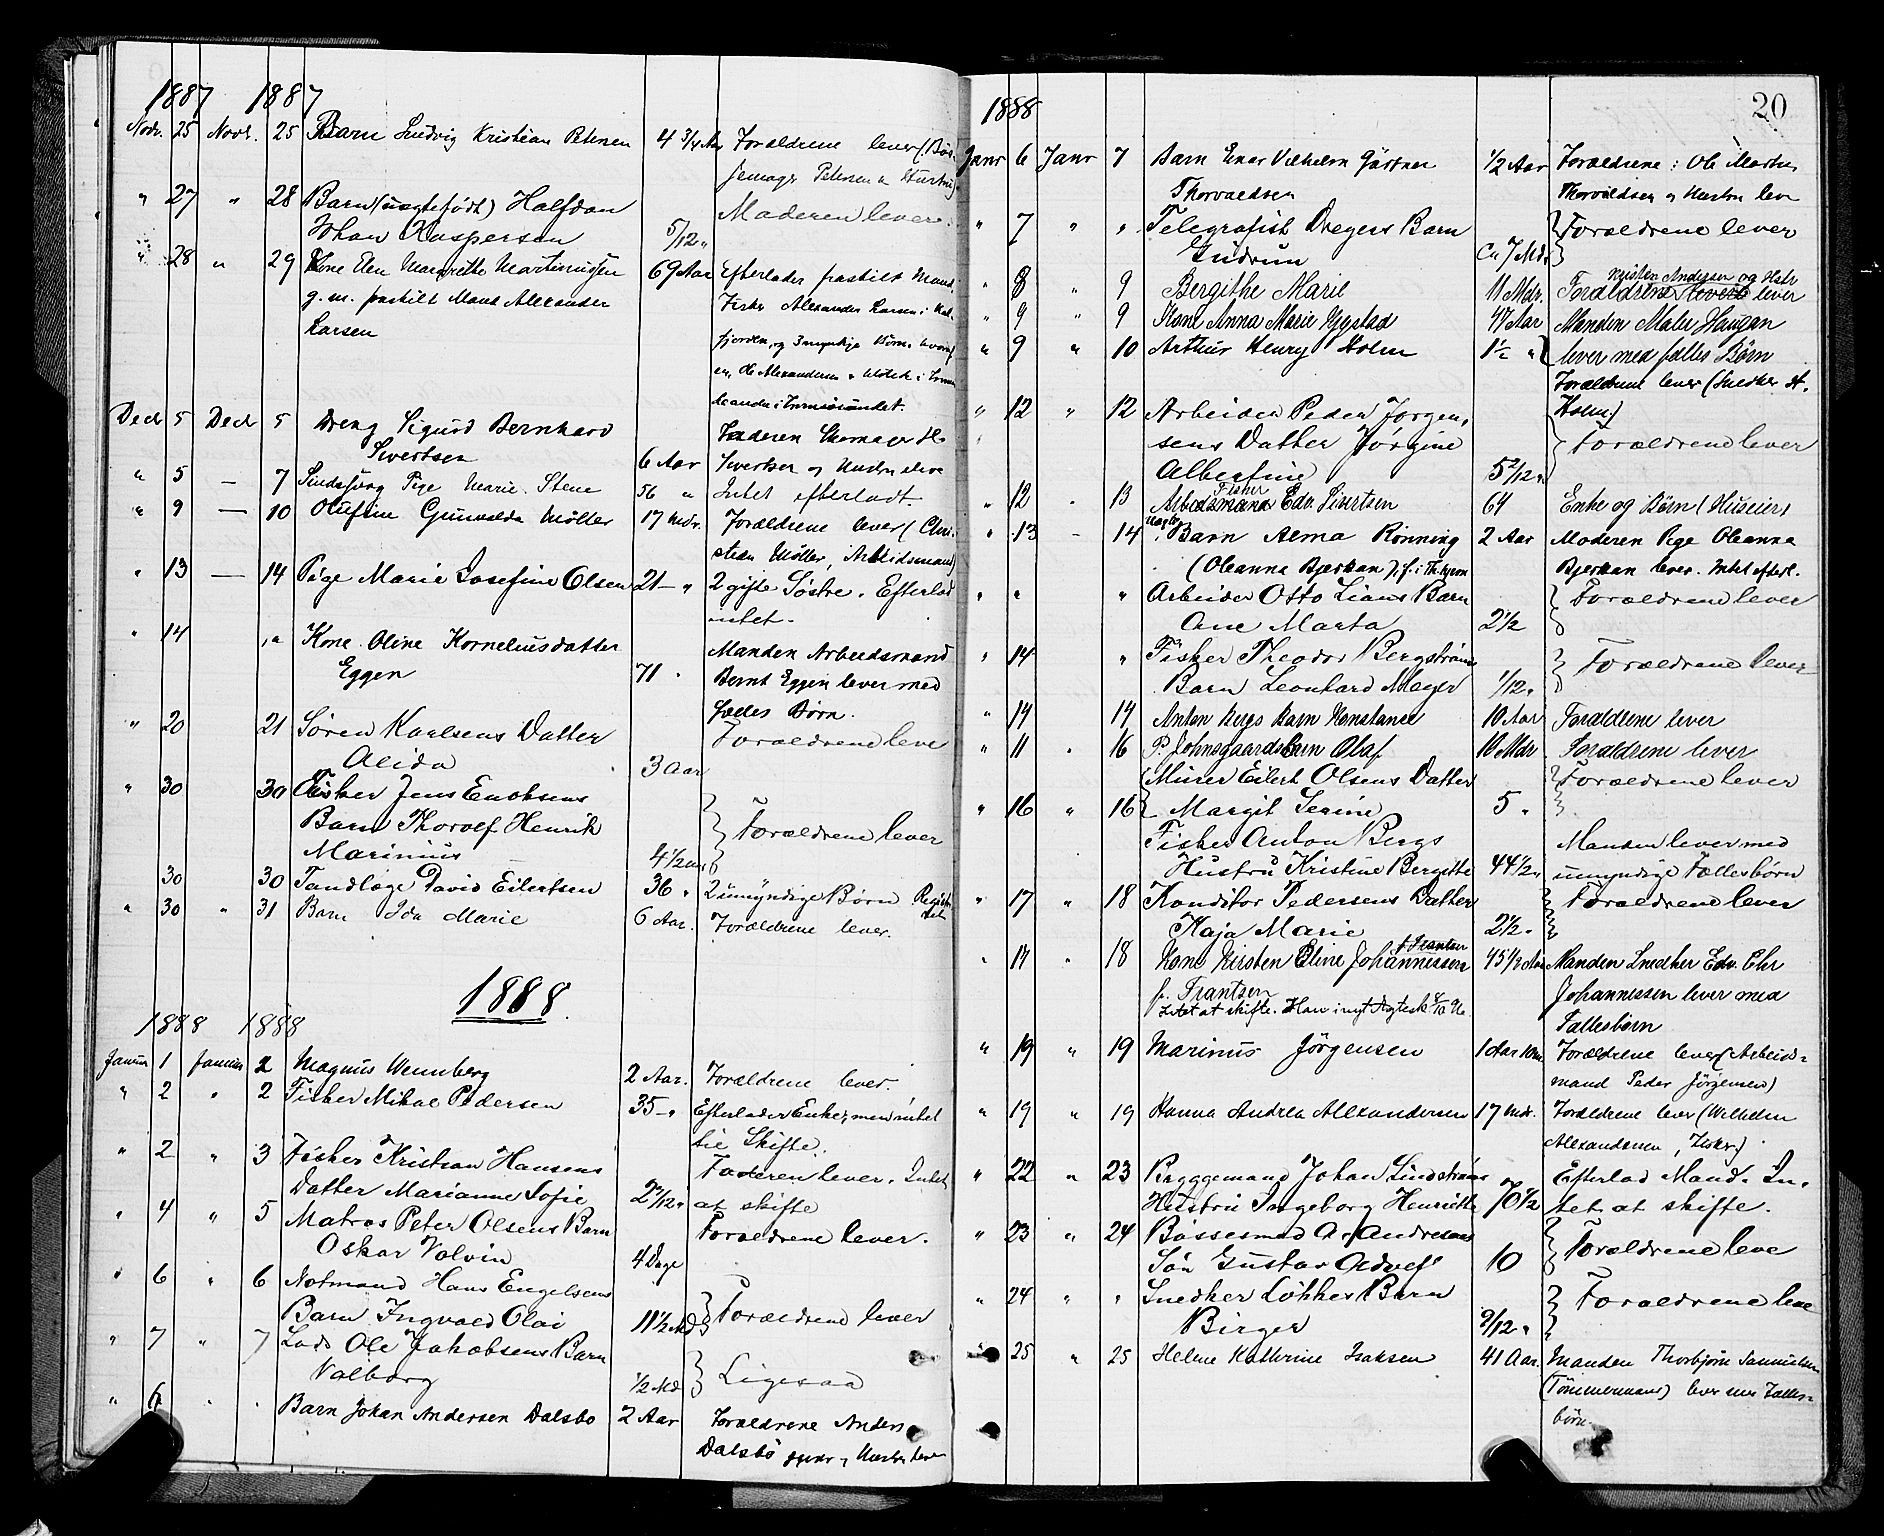 1887 1887
Novr. 25 Novr. 25 Barn Ludvig Kristian Petersen 4 3/4 Aar Forældrene lever (Bøs-
semager Petersen & Hustru)
" 27 " 28 Barn (uægtefødt) Halfdan Moderen lever.
Johan Kaspersen 5/12 "
" 28 " 29 Kone Elen Margrethe Martinusen 69 Aar Efterlader fraskilt Mand
g. m. fraskilt Mand Alexander Fisker Alexander Larsen i
Larsen fjorden, og 3 myndige Børn, hvoraf
en, Ole Alexandersen
Decr 5 Decr 5 Dreng Sigurd Bernhard Faderen Skomager
Sivertsen 6 Aar Sivertsen og Hustru
" 5 — 7 Sindssvag Pige Marie Stene 56 " Intet efterladt.
" 9 — 10 Olufine Gunvalda Møller 17 Mdr. Forældrene lever (Chri-
stian Møller, Arbeidsmand)
" 13 — 14 Pige Marie Josefine Olsen 21 — " 2 gifte Søstre. Efterlod
intet.
" 14 " Kone Oline Korneliusdatter Manden Arbeidsmand
Eggen 71 " Bernt Eggen lever med
fælles Børn.
" 20 21 Søren Karlsens Datter Forældrene leve
Alida 3 Aar
" 30 30 Fisker Jens Enoksens
Barn Thorolf Henrik Forældrene lever
Marinius 4 1/2
30 30 Tandlæge David Eilertsen 36 " 2 umyndige Børn
" 30 " 31 Barn Ida Marie 6 Aar. Forældrene lever.
1888.
1888 1888
Januar 1 Januar 2 Magnus Wennberg 2 Aar. Forældrene lever.
" 2 " 2 Fisker Mikal Pedersen 35 — " Efterlader Enke, men intet
til Skifte.
" 2 " 3 Fisker Kristian Hansens Faderen lever. Intet
Datter Marianne Sofie 2 /12 " at skifte
" 4 " 5 Matros Peter Olsens Barn Forældrene lever.
Oskar Valvin 4 Dage
" 6 " 6 Notmand Hans Engelsens
Barn Ingvald Olai 11 1/2 Md Forældrene lever
" 7 " 7 Lods Ole Jakobsens Barn
Valborg 1/2 Md Ligesaa
" 6 " " Barn Johan Andersen Dalsbo 2 Aar Forældrene Anders
Dalsbo
20
1888
Janr 6 Janr 7 Barn Enar Vilhelm Gärtner 1/2 Aar Forældrene: Ole Martin
Thorvaldsen Thorvaldsen og Hustru leve
" 7 " " Telegrafist Dregers Barn Forældrene lever
Gudrun Ca 7 Mdr
Kristen Andersen og Hstr
" 8 " 9 Bergithe Marie 11 Mdr. Forældrene lever
" 9 " 9 Kone Anna Marie Vigstad 47 Aar Manden Maler Haugan
" 9 " 10 Arthur Henry Holm 1 1/2 " lever med fælles Børn
Forældrene lever (Snedker A.
" 12 " 12 Arbeider Peder Jørgen- Holm)
sens Datter Jørgine Forældrene lever
Albertine 5 2/12 "
Fisker
" 12 " 13 Arbeidsmand Edv. Sivertsen 64 Enke og Børn (Huseier)
" 13 — 14 uægte Barn Alma Rønning 2 Aar Moderen Pige Oleanna
(Oleanna Bjerkan) Bjerkan lever. Intet efterl.
" " " Arbeider Otto Lians Barn Forældrene lever
Ane Marta 2 1/2
" 14 " Fisker Theodor Bergstrøms Forældrene lever
Barn Leonhard Meyer 1/12 "
" 14 14 Anton Bergs Barn Konstance 10 Aar Forældrene lever
" 11 " 16 P. Johnsgaards Barn Olaf 10 Mdr Forældrene lever
Murer Eilert Olsens Datter Forældrene lever
" 16 " 16 Margit Serine 5 "
Fisker Anton Bergs Manden lever med
Hustru Kristine Bergitte 44 1/2 " umyndige Fællesbørn
" 17 " 18 Konditor Pedersens Datter Forældrene lever
Kaja Marie 2 1/2 "
f. Frantsen
" 17 " 18 Kone Kirsten Eline Johannessen 45 1/2 Aar Manden Snedker Edv. Chr
f. Frantsen Johannessen lever med
Intet at skifte. Han i nyt Ægtesk. Fællesbørn
" 19 " 19 Marinus Jørgensen 1 Aar Forældrene lever (Arbeids-
mand Peder Jørgensen)
" 19 " 19 Hanna Andrea Alexandersen 17 Mdr. Forældrene lever (Wilhelm
Alexandersen, Fisker)
" 22 " 23 Byggemand Johan Lindstrøms Efterlod Mand. In-
Hustru Ingeborg Henriette 70 1/2 tet at skifte.
" 23 " 24 Bøssesmed A. Andresens Forældrene leve
Søn Gustav Adolf 10
" 24 " " Snedker Løkkes Barn Forældrene leve
Birger 9/12 "
" 25 " 25 Helene Kathrine Isaksen 41 Aar. Manden Thorbjørn Samuelsen
(Tømmermand) lever med Fælles-
børn